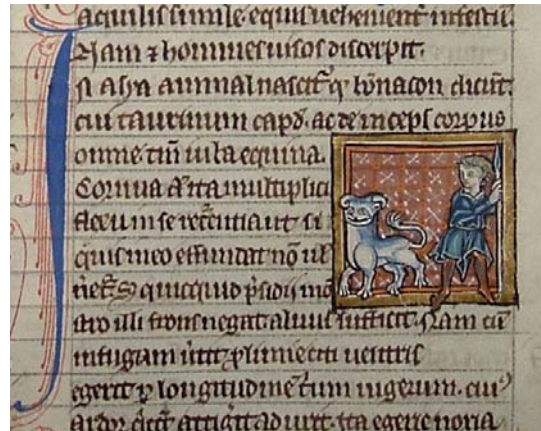 aquilis simile. equis uehement̃ infestũ.
Nam ⁊ hommes uiuos discerpit.
In asya animal nascit᷑ q̃ bonacon dicunt.
cui taurinum cap̃d. ac deinceps corpus
omne tm̃ iuba equina.
Cornua aũt ita multiplici
flexu in se recurrentia ut si
quis in eo effundat nõ
quicquid p̃sidii
stro illi frons negat aluus sufficit. Nam cũ
in fugam uertit proluuie citi uentris
egerit p longitudinẽ trium iugerum. cui⁹
ardor quicq̃d attigit aduret. ita egerie noxia